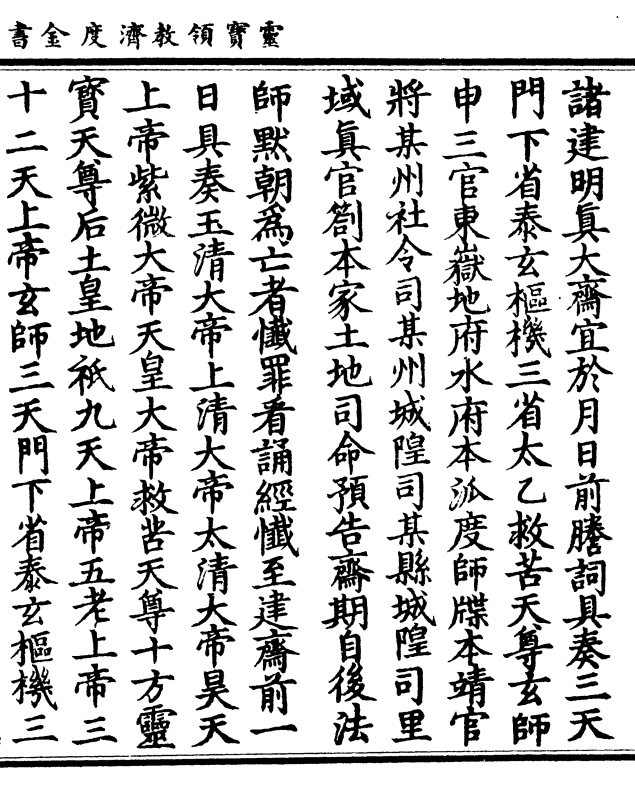 靈寶領教濟度金書
諸建明眞大齋宜於月日前謄詞具奏三天
門下省泰玄樞機三省太乙救苦天尊玄師
申三官東嶽地府水府本派度師牒本靖官
將某州社令司某州城隍司某縣城隍司里
域眞官劄本家土地司命預告齋期自後法
師默朝爲亡者懺罪看誦經懺至建齋前一
日具奏玉清大帝上清大帝太清大帝昊天
上帝紫微大帝天皇大帝救苦天尊十方靈
寶天尊后土皇地祇九天上帝五老上帝三
十二天上帝玄師三天門下省泰玄樞機三